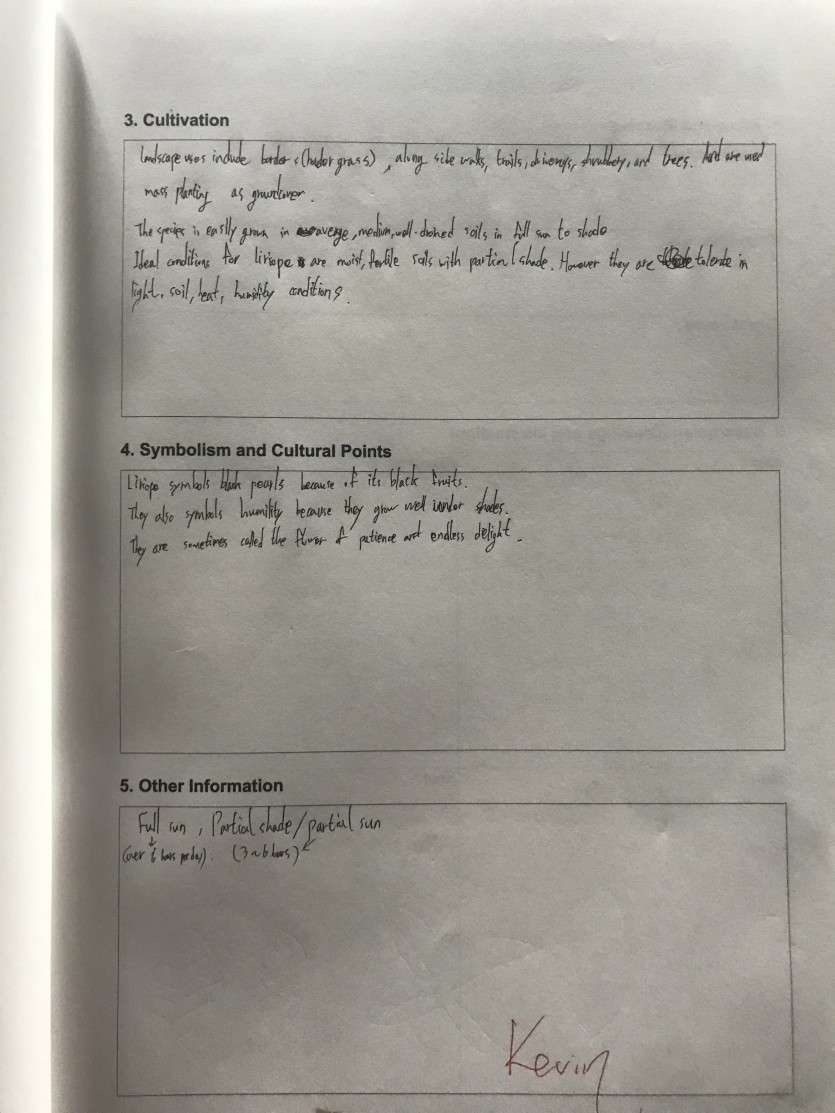 3. Cultivation
Landscape uses include borders (border grass), along side walks, trails, driveways, shrubbery, and trees. And are used
mass planting as groundcover.
The species is easily grown in average, medium, well-drained soils in full sun to shade
Ideal conditions for liriope are moist, fertile soils with partial shade. However they are in
light, soil, heat, humidity conditions.
4. Symbolism and Cultural Points
Liriope symbols black pearls because of its black fruits.
They also symbols humility because they grow well under shades.
They are sometimes called the flower of patience and endless delight.
5. Other Information
Full sun, Partial shade/partial sun
(over 6 hours per day). (3~6 hours)
Kevin